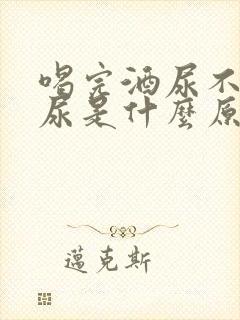 喝完酒尿不
尿是什麼原
邁克斯